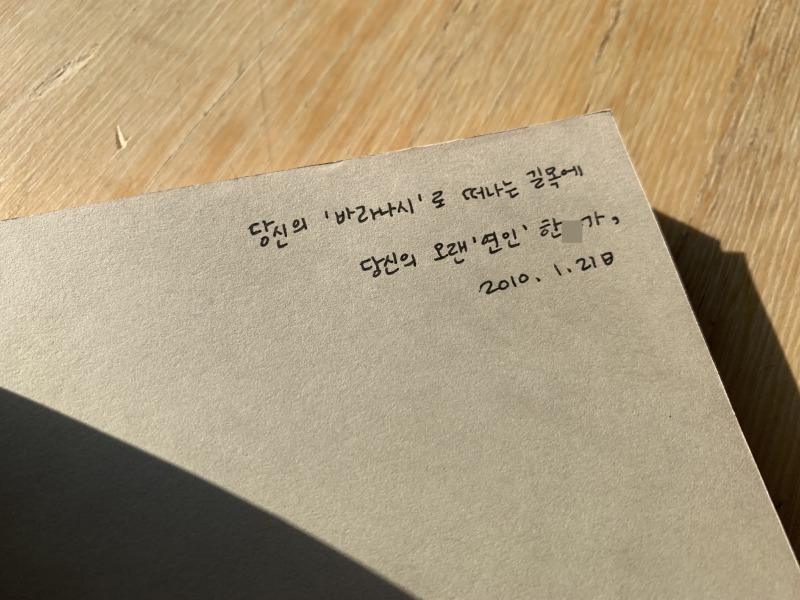 당신의 '바라나시'로 떠나는 길목에
당신의 오랜 '연인' 한 가,
2010. 1. 21日